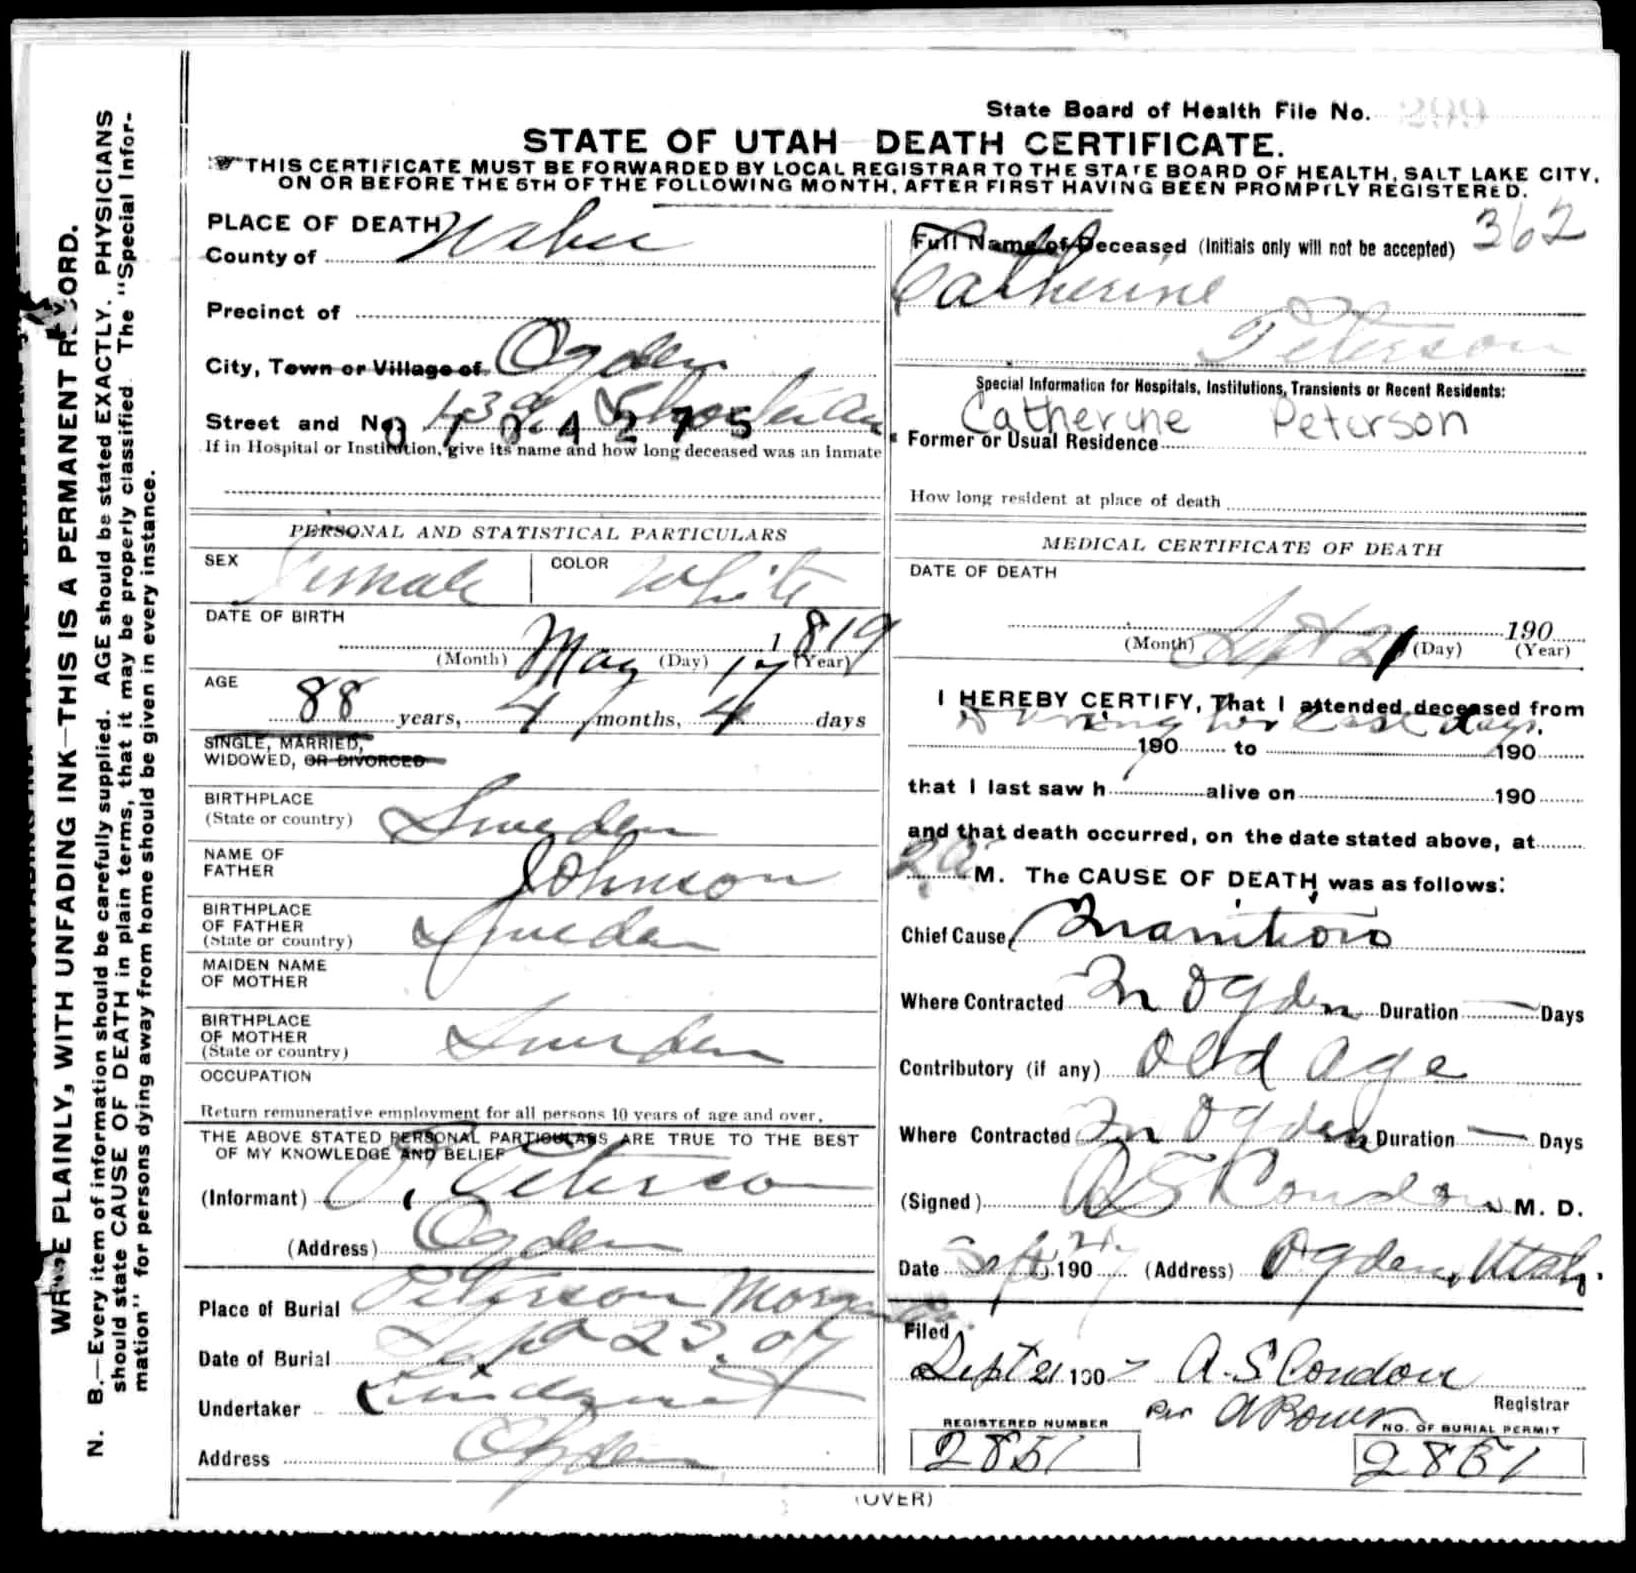 State Board of Health File No. 299
STATE OF UTAH—DEATH CERTIFICATE.
THIS CERTIFICATE MUST BE FORWARDED BY LOCAL REGISTRAR TO THE STATE BOARD OF HEALTH, SALT LAKE CITY,
ON OR BEFORE THE 5TH OF THE FOLLOWING MONTH, AFTER FIRST HAVING BEEN PROMPTLY REGISTERED.
WRITE PLAINLY, WITH UNFADING INK—THIS IS A PERMANENT RECORD.
N. B.—Every item of information should be carefully supplied. AGE should be stated EXACTLY. PHYSICIANS
should state CAUSE OF DEATH in plain terms, that it may be properly classified. The "Special Infor-
mation" for persons dying away from home should be given in every instance.
PLACE OF DEATH
County of Weber
Precinct of
City, Town or Village of Ogden
Street and No.
0104275
If in Hospital or Institution, give its name and how long deceased was an inmate
PERSONAL AND STATISTICAL PARTICULARS
SEX Female COLOR White
DATE OF BIRTH
May 17 1819
(Month) (Day) (Year)
AGE
88 years, 4 months, 4 days
SINGLE, MARRIED,
WIDOWED, OR DIVORCED
BIRTHPLACE
(State or country) Sweden
NAME OF
FATHER Johnson
BIRTHPLACE
OF FATHER
(State or country) Sweden
MAIDEN NAME
OF MOTHER
BIRTHPLACE
OF MOTHER
(State or country) Sweden
OCCUPATION
Return remunerative employment for all persons 10 years of age and over.
THE ABOVE STATED PERSONAL PARTICULARS ARE TRUE TO THE BEST
OF MY KNOWLEDGE AND BELIEF
(Informant) Peterson
(Address) Ogden
Place of Burial Peterson Morgan Co.
Date of Burial Sept 23. 07
Undertaker Lindquist
Address Ogden
Full Name of Deceased (Initials only will not be accepted) 362
Catherine
Peterson
Special Information for Hospitals, Institutions, Transients or Recent Residents:
Catherine Peterson
Former or Usual Residence
How long resident at place of death
MEDICAL CERTIFICATE OF DEATH
DATE OF DEATH
Sept 21 190
(Month) (Day) (Year)
I HEREBY CERTIFY, That I attended deceased from
during her last days.
190 to 190
that I last saw h alive on 190
and that death occurred, on the date stated above, at
2 a M. The CAUSE OF DEATH was as follows:
Chief Cause Inanition
Where Contracted In Ogden Duration — Days
Contributory (if any) Old Age
Where Contracted In Ogden Duration — Days
(Signed) A S Condon M. D.
Date Sept. 21. 1907 (Address) Ogden, Utah.
Filed
Sept 21 1907 A. S Condon
Registrar
Per
REGISTERED NUMBER
2851
NO. OF BURIAL PERMIT
2851
(OVER)